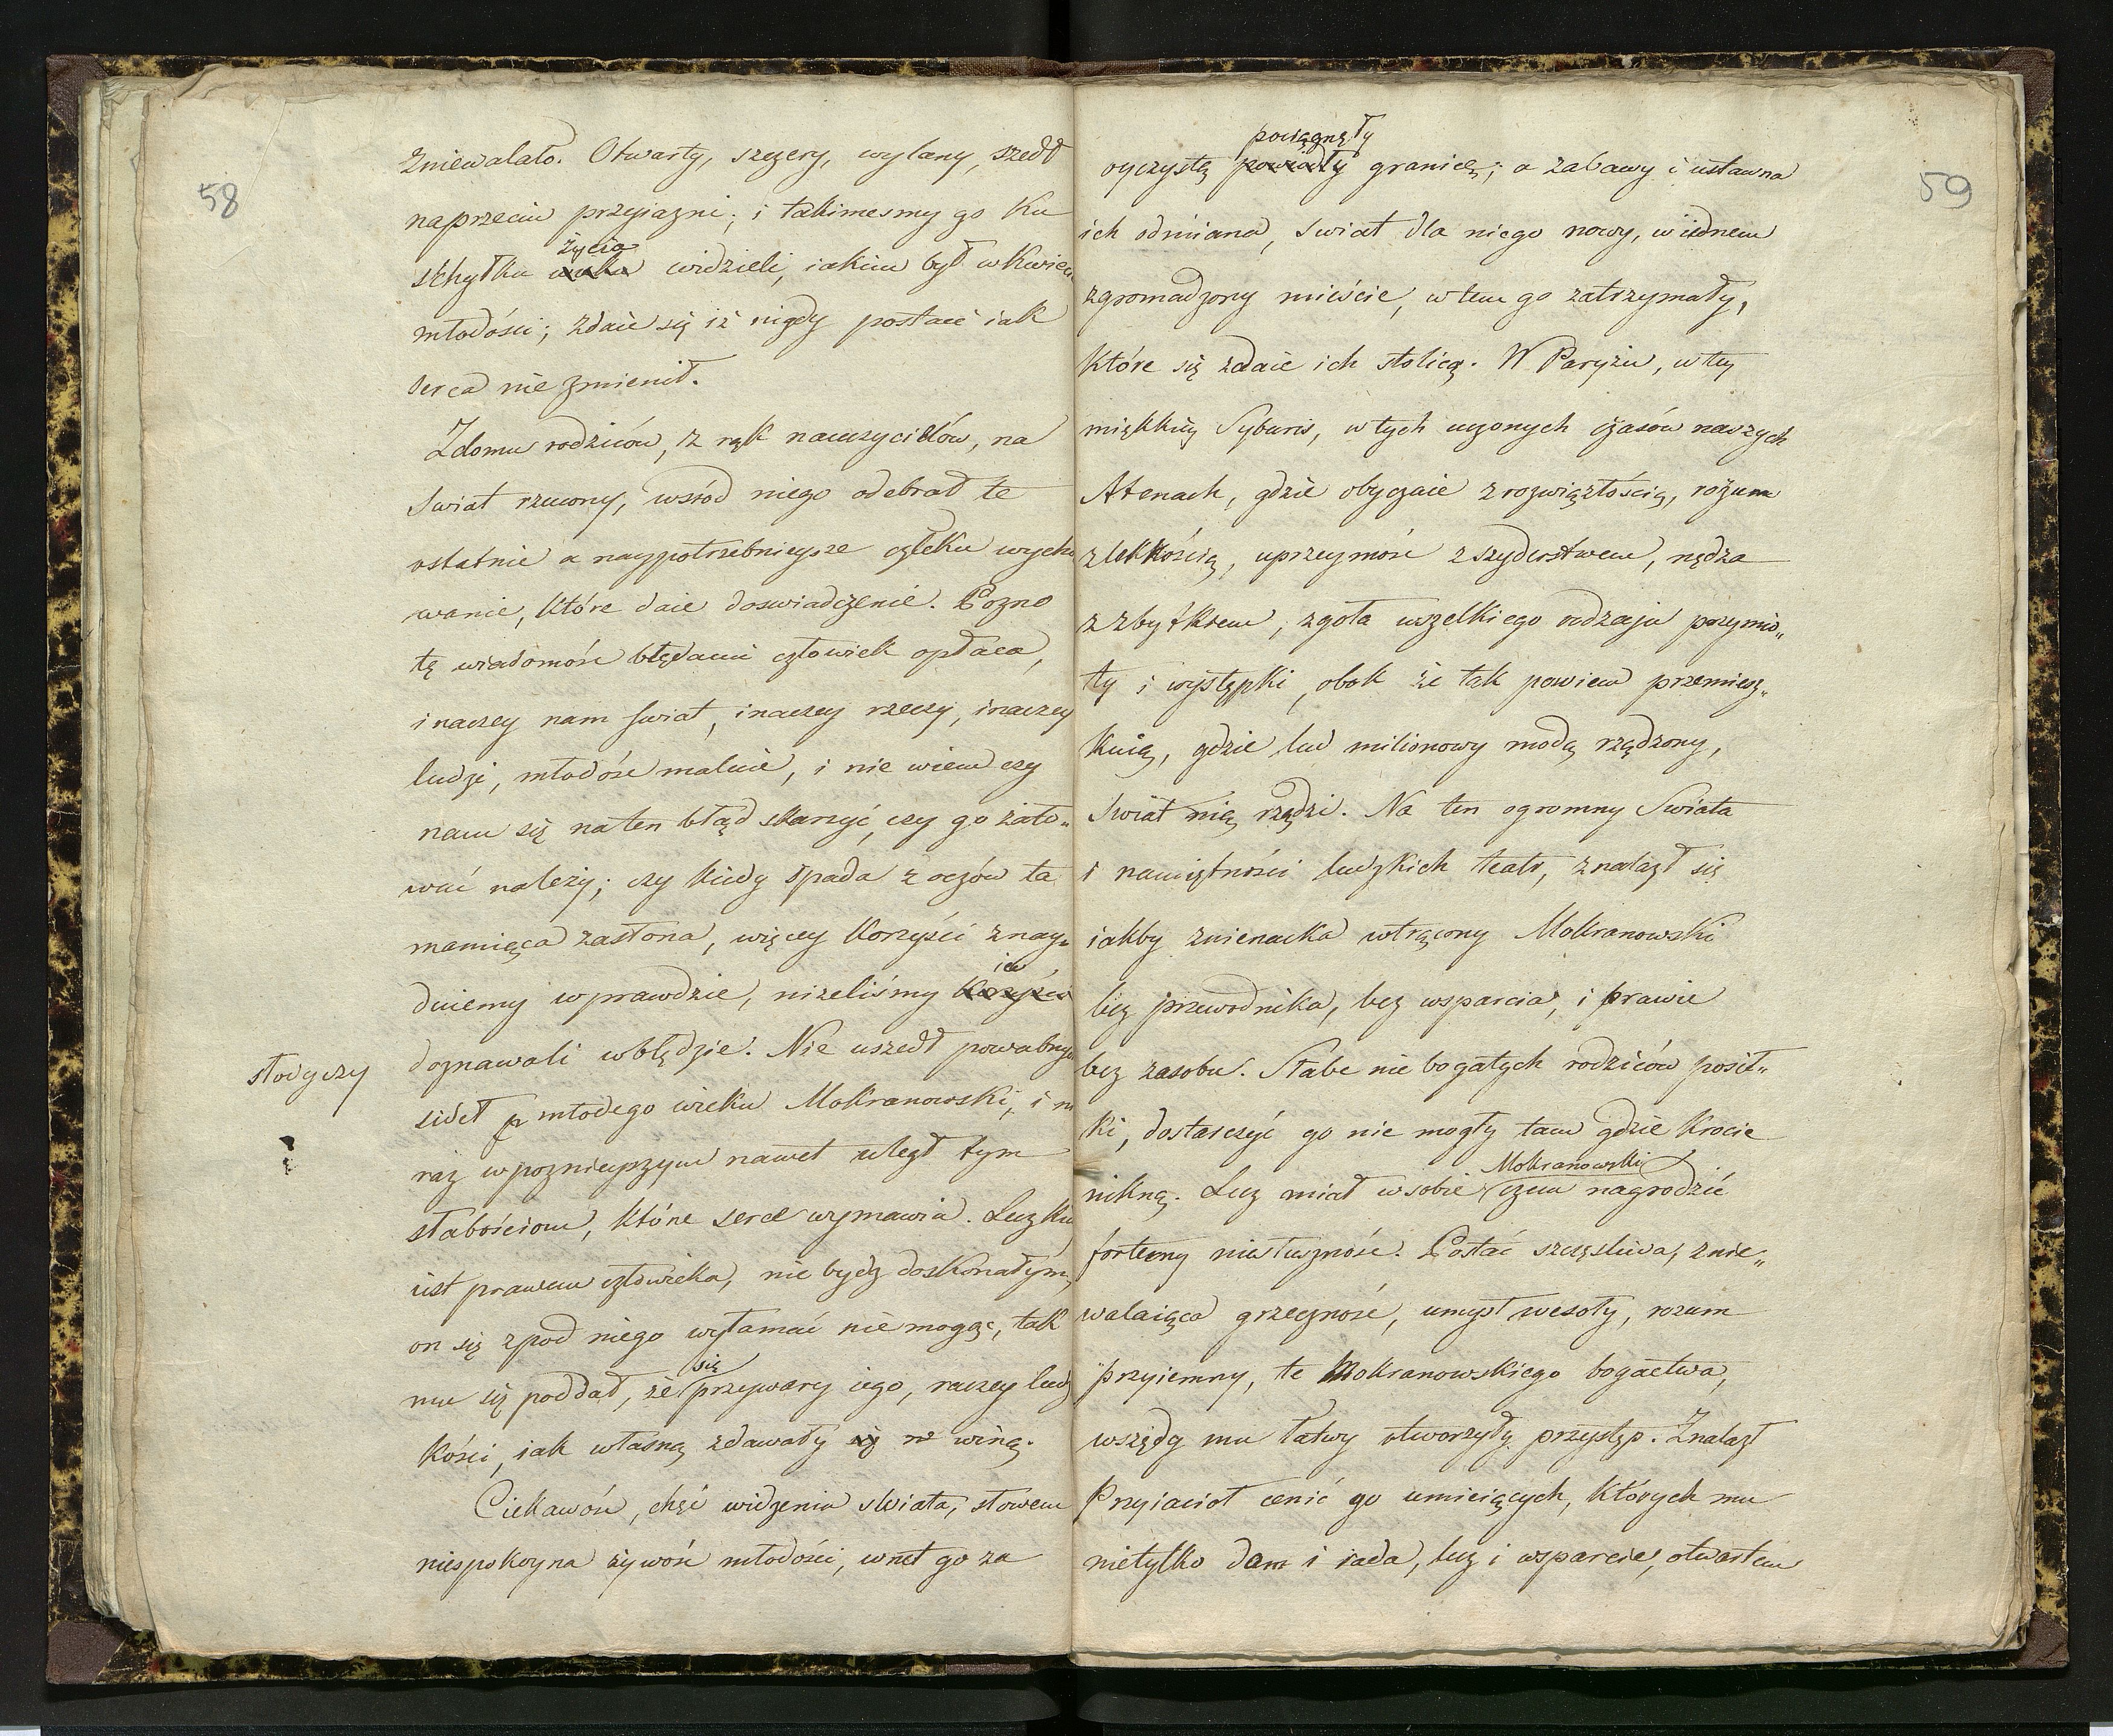 58
zniewalało. Otwarty, szczery, wylany, szedł
naprzeciw przyiazni; i takimesmy go ku
życia
schyłku wieku widzieli, iakim był w kwiecu
młodości; zdaie się iż nigdy postaci iak
serca nie zmienił.
Z domu rodziców, z rąk nauczycielów, na
Swiat rzucony, wsród niego odebrał te
ostatnie a naypotrzebnieysze człeku wycho
wanie, które daie doswiadczenie. Pozno
tę wiadomość błędami człowiek opłaca,
inaczey nam swiat, inaczey rzeczy, inaczey
ludzi, młodość maluie, i nie wiem czy
nam się na ten błąd skarzyć, czy go żało„
wać należy; czy kiedy spada z oczów ta
mamiąca zasłona, więcey korzyści znay„
iey
duiemy w prawdzie, niżeliśmy korzyści
słodyczy
doznawali w błędzie. Nie uszedł powabnych
sideł młodego wieku Mokranowski, i n
raz w poznieyszym nawet uległ tym
słabościom, które serce wymawia. Lecz kie
iest prawem człowieka, nie bydź doskonałym,
on się zpod niego wyłamać nie mogąc, tak
się
mu się poddał, że przywary iego, raczey ludz
kości, iak własną zdawały się winą.
Ciekawość, chęć widzenia swiata, słowem
niespokoyna żywość młodości, wnet go za
59
pociągnęły
oyczystą powiodły granicę; a zabawy i ustawna
ich odmiana, swiat dla niego nowy, w iednem
zgromadzony mieście, w tem go zatrzymały,
które się zdaie ich stolicą. W Paryżu, w tey
miękkiey Sybaris, w tych uczonych czasów naszych
Atenach, gdzie obyczaie z rozwiązłością, rozum
z lekkością, uprzeymość z szyderstwem, nędza
z zbytkiem, zgoła wszelkiego rodzaju przymio„
ty i występki, obok że tak powiem przemiesz„
kuią, gdzie lud milionowy modą rządzony,
Swiat nią rządzi. Na ten ogromny Swiata
i namiętności ludzkich teatr, znalazł się
iakby znienacka wtrącony Mokranowski
bez przewodnika, bez wsparcia, i prawie
bez zasobu. Słabe nie bogatych rodziców posił„
ki, dostarczyć go nie mogły tam gdzie krocie
Mokranowski
nikną. Lecz miał w sobie czem nagrodzić
fortuny niesłuszność. Postać szczęsliwa, znie„
walaiąca grzeczność, umysł wesoły, rozum
przyiemny, te Mokranowskiego bogactwa,
wszędy mu łatwy otworzyły przystęp. Znalazł
Przyiacioł cenić go umieiących, których mu
nietylko dom i rada, lecz i wsparcie, otwartem